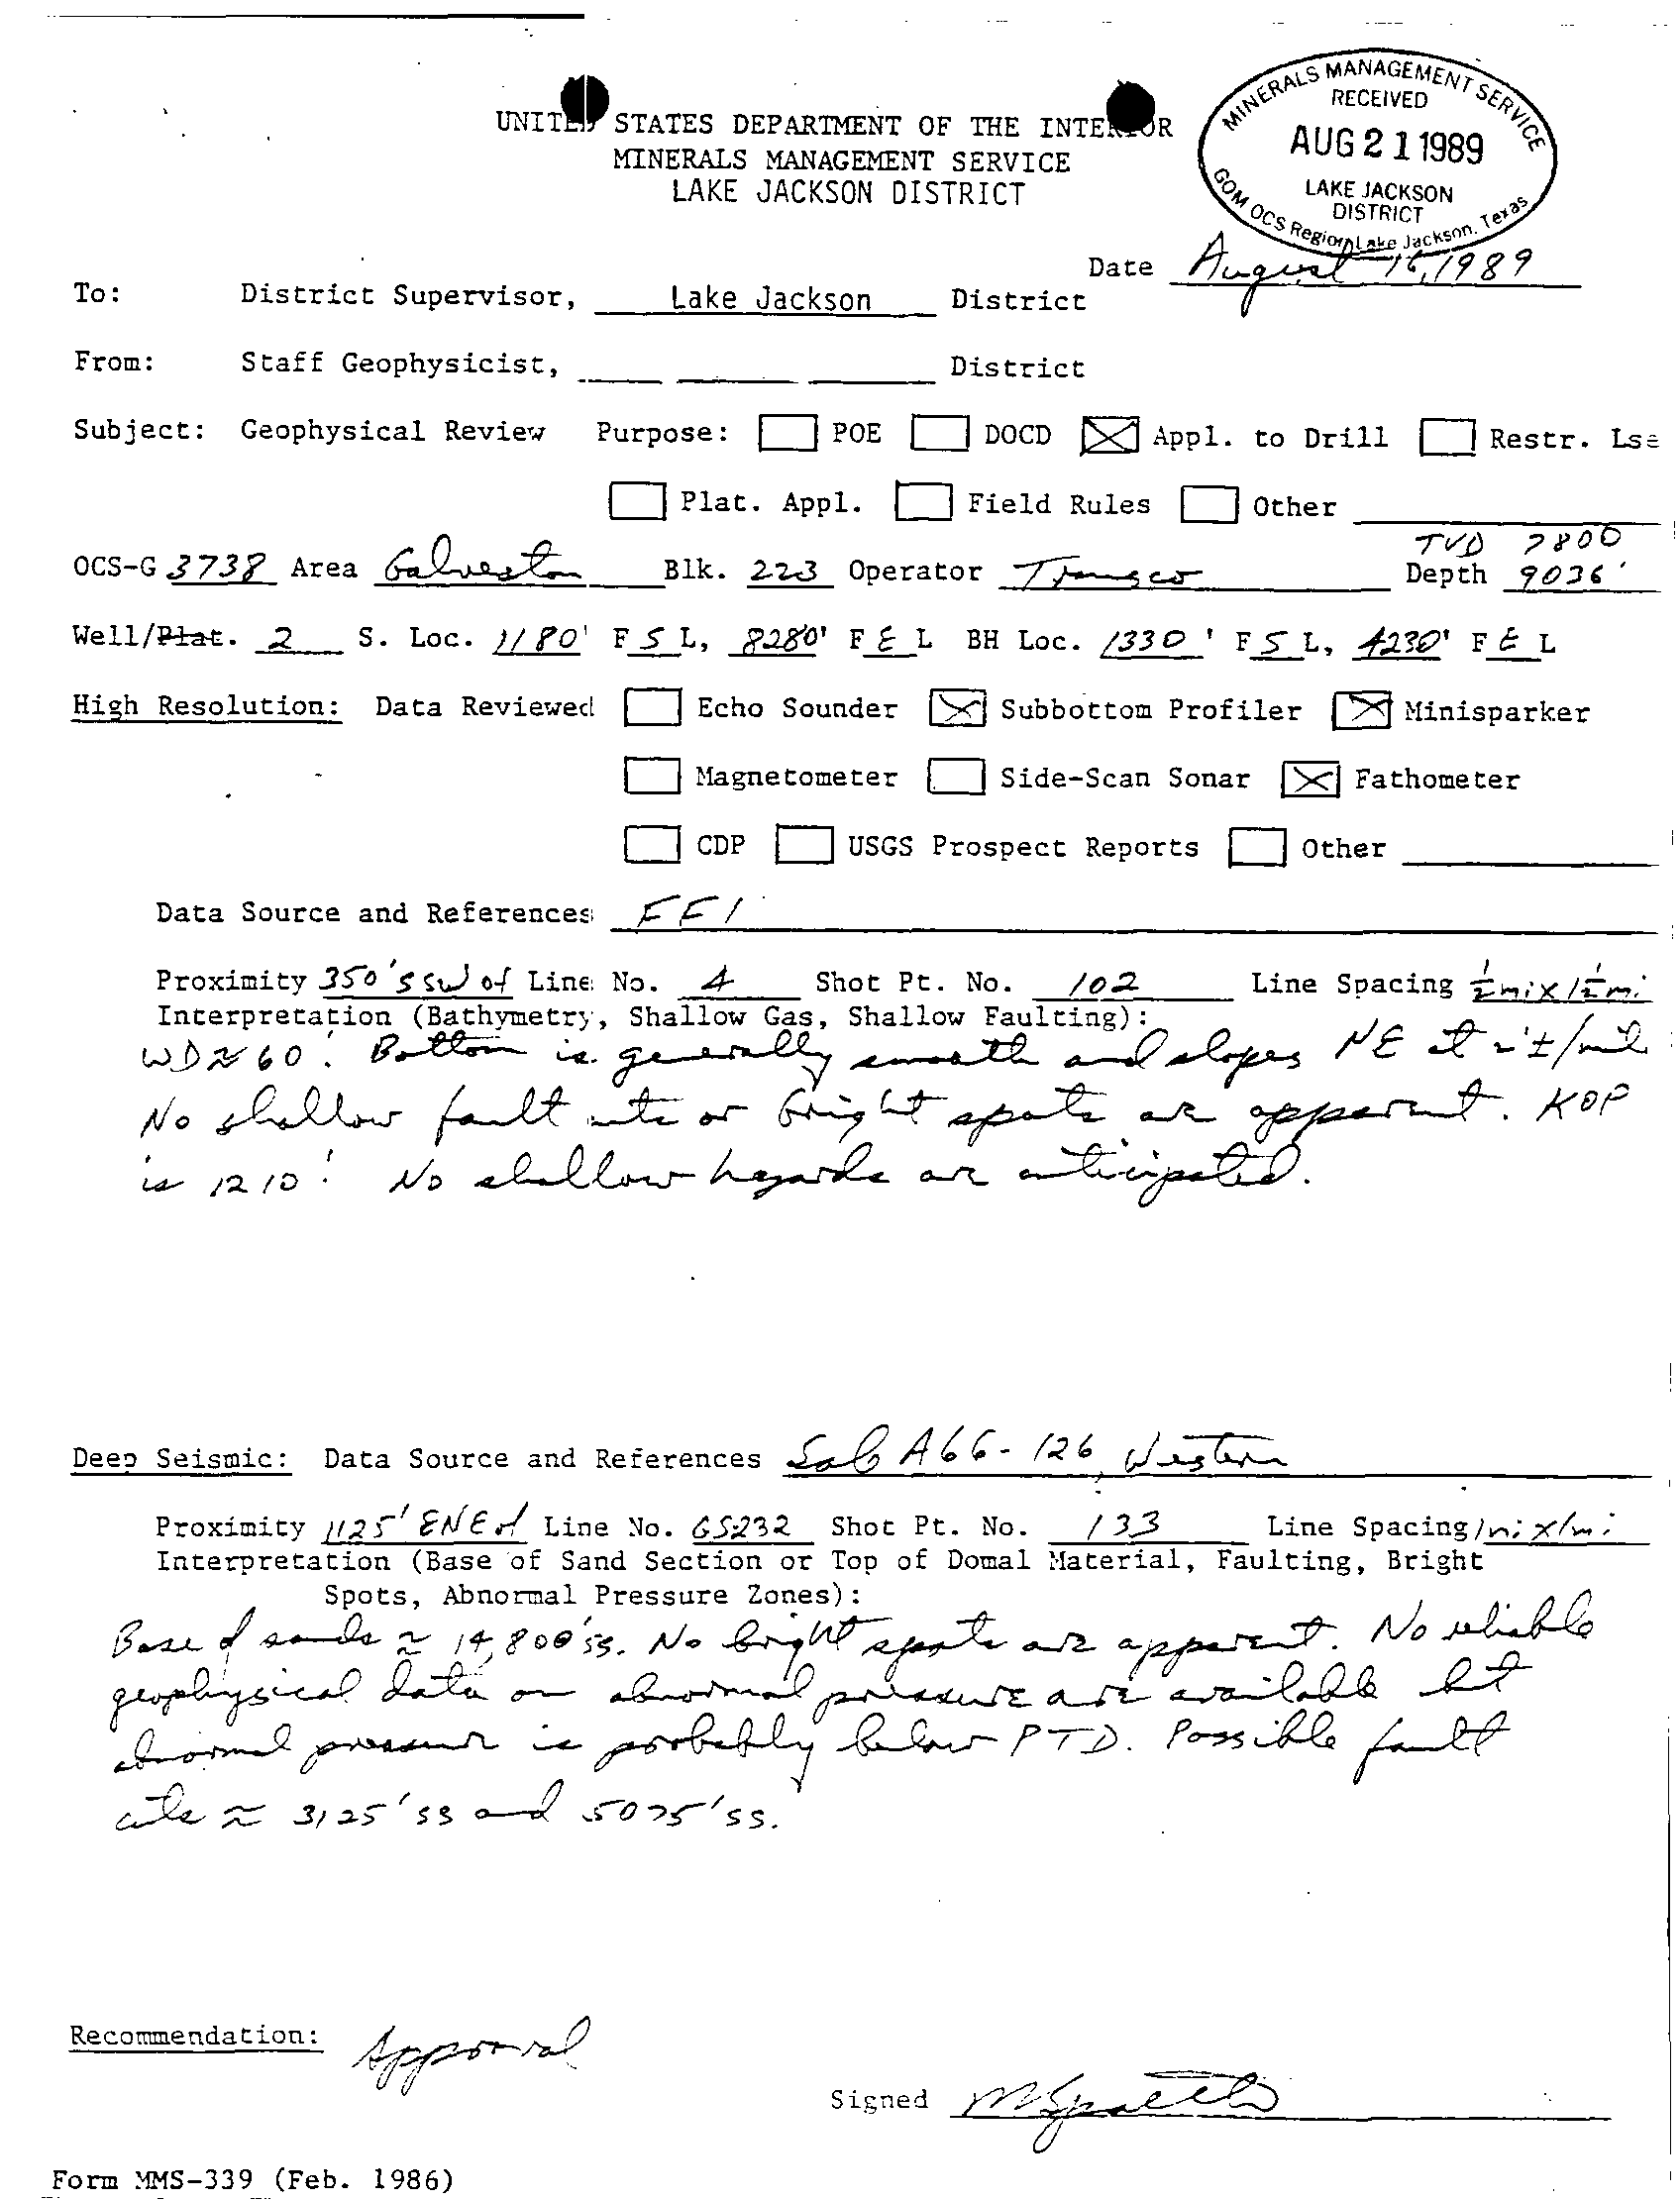 MINERALS MANAGEMENT SERVICE
RECEIVED
AUG 21 1989
LAKE JACKSON
DISTRICT
GOM OCS Region, Lake Jackson, Texas
UNITED STATES DEPARTMENT OF THE INTERIOR
MINERALS MANAGEMENT SERVICE
LAKE JACKSON DISTRICT
Date August 15, 1989
To: District Supervisor, Lake Jackson District
From: Staff Geophysicist, District
Subject: Geophysical Review Purpose: POE DOCD Appl. to Drill Restr. Lse
Plat. Appl. Field Rules Other
TVD 7800
OCS-G 3738 Area Galveston Blk. 223 Operator Transco Depth 9036'
Well/Plat. 2 S. Loc. 1180' F S L, 8280' F E L BH Loc. 1330' F S L, 4230' F E L
High Resolution: Data Reviewed Echo Sounder Subbottom Profiler Minisparker
Magnetometer Side-Scan Sonar Fathometer
CDP USGS Prospect Reports Other
Data Source and References FFI
Proximity 350' SSW of Line No. 4 Shot Pt. No. 102 Line Spacing ½mi x ½mi
Interpretation (Bathymetry, Shallow Gas, Shallow Faulting):
WD ≈ 60'. Bottom is generally smooth and slopes NE at ±/mile
No shallow fault cuts or bright spots are apparent. KOP
is 1210'. No shallow hazards are anticipated.
Deep Seismic: Data Source and References Sab A66-126, Western
Proximity 1125' ENE of Line No. GS232 Shot Pt. No. 133 Line Spacing 1mi x 1mi
Interpretation (Base of Sand Section or Top of Domal Material, Faulting, Bright
Spots, Abnormal Pressure Zones):
Base of sands ≈ 14,800'ss. No bright spots are apparent. No reliable
geophysical data on abnormal pressure are available but
abnormal pressure is probably below PTD. Possible fault
cuts ≈ 3125'ss and 5075'ss.
Recommendation: Approval
Signed
Form MMS-339 (Feb. 1986)